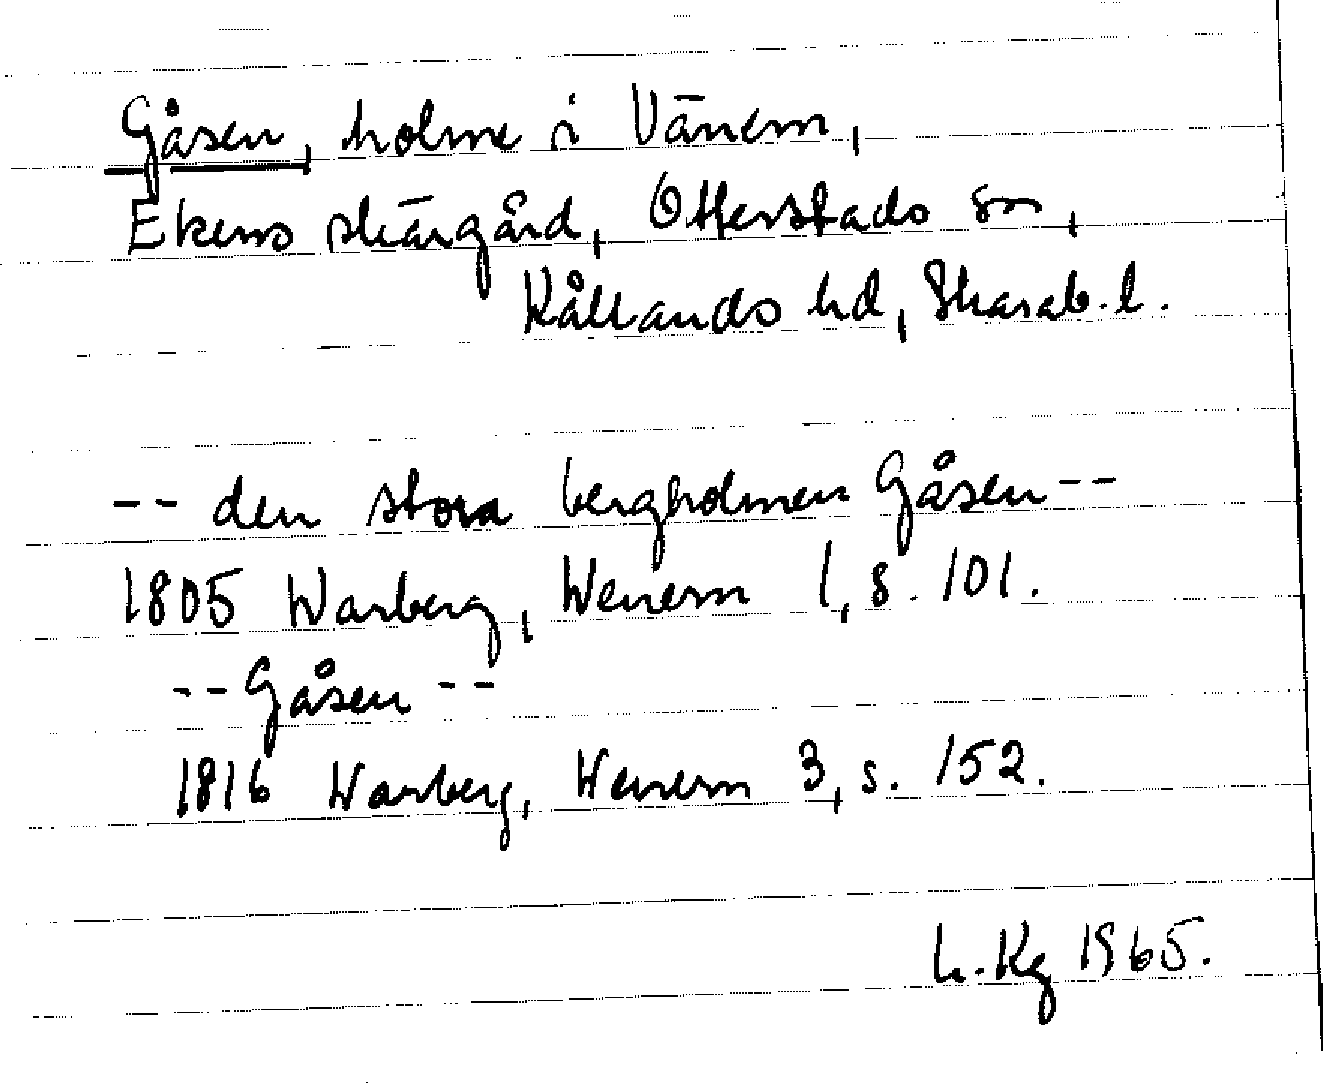 Gåsen, holme i Vänern,
Ekens skärgård, Otterstads sn,
Kållands hd, Skarab. l.
-- den stora bergholmen Gåsen --
1805 Warberg, Wenern 1, s. 101.
-- Gåsen --
1816 Warberg, Wenern 3, s. 152.
L. Kg 1965.